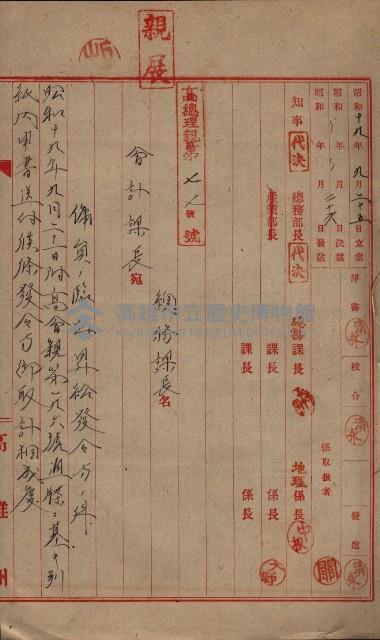 親展
昭和十九年九月二十五日立案
昭和 年 月 日決裁
昭和 年 月二十六日發送
淨書 清水 校合 清水 發送 清水
知事 代決 總務部長 代決 總務課長 地理係長 中根 係取扱者 關
產業部長 課長 係長 大野
課長 係長
高總理親第七七號
號
總務課長名
會計課長宛
傭員ノ臨時昇給發令方ノ件
昭和十九年九月二十一日附高會親第一九六號通牒ニ基キ別
紙內申書送付候條發令方御取計相成度
高雄州
高雄市立歷史博物館
KAOHSIUNG MUSEUM OF HISTORY